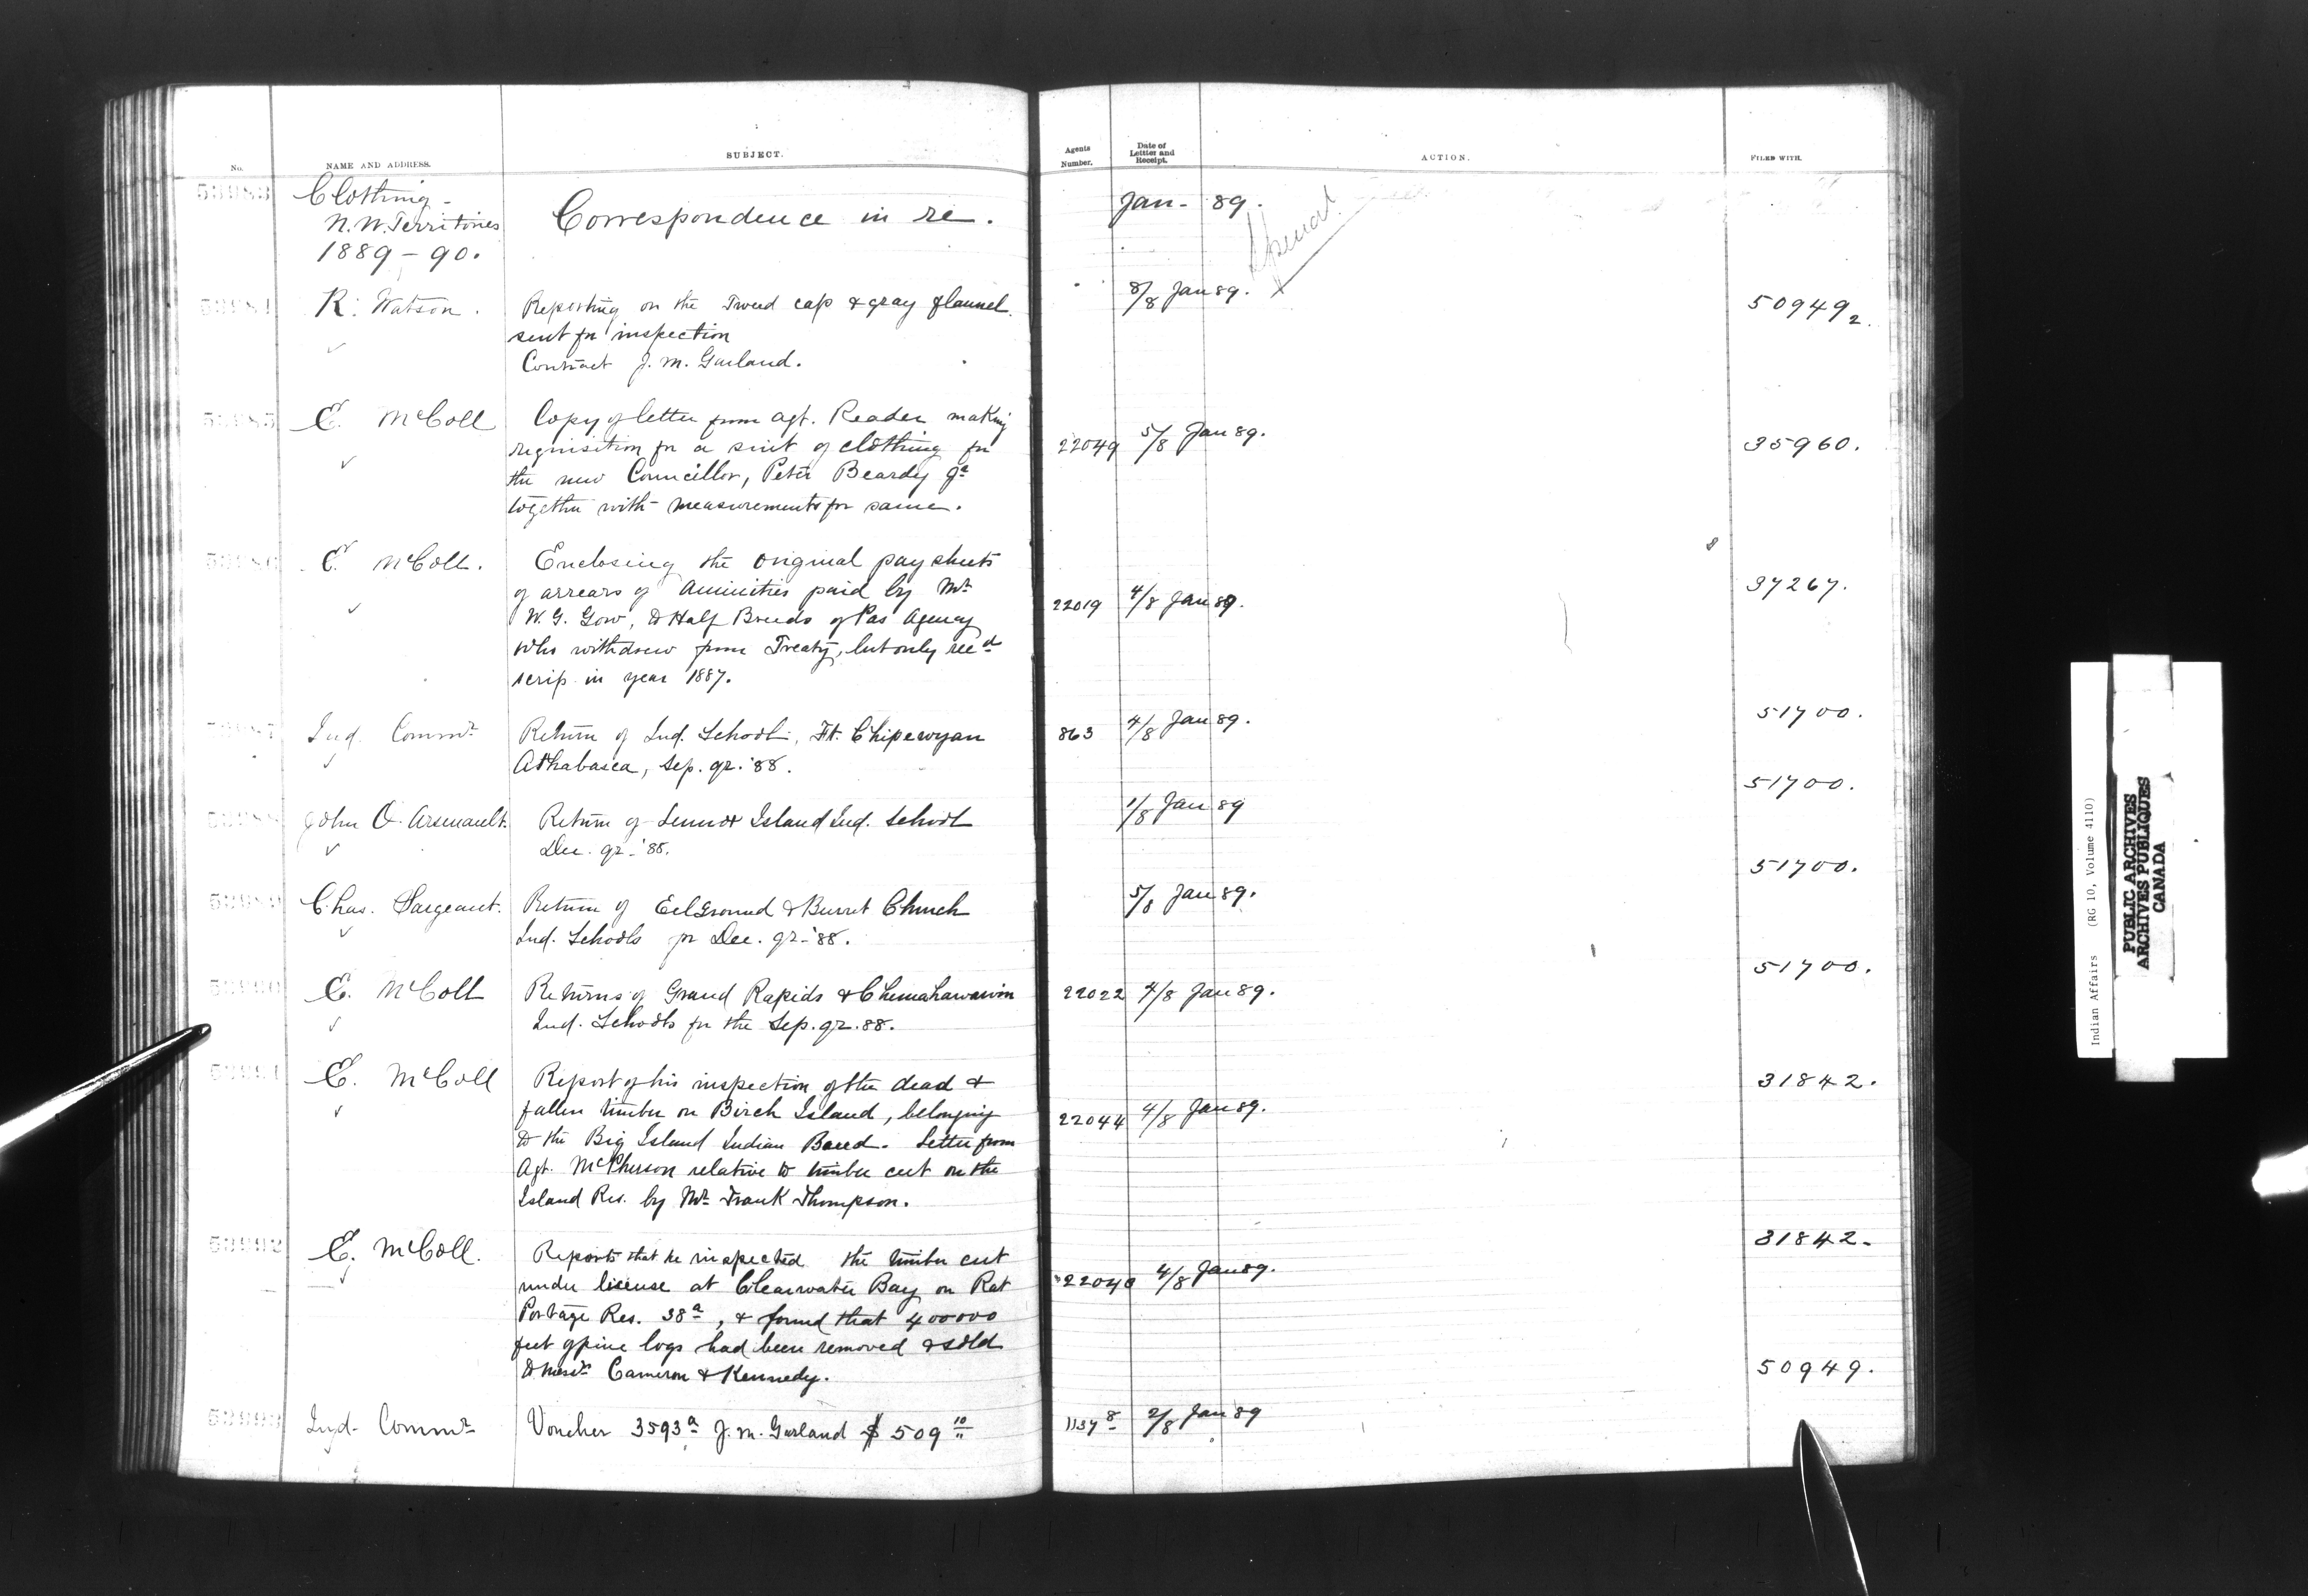 No.
NAME AND ADDRESS.
SUBJECT.
Agents
Number.
Date of
Letter and
Receipt.
ACTION.
FILED WITH.
Clothing -
N.W. Territories
1889 - 90.
Correspondence in re.
Jan - 89.
R. Watson.
Reporting on the Tweed cap & gray flannel
sent for inspection
Contract J. M. Garland.
8/8 Jan 89.
50949 2.
E. McColl
Copy of letter from agt. Reader making
requisition for a suit of clothing for
the new Councillor, Peter Beardy
together with measurements for same.
22049
5/8 Jan 89.
35960.
E. McColl.
Enclosing the original pay sheets
of arrears of Annuities paid by Mr
W. G. Gow, to Half Breeds of Pas Agency
who withdrew from Treaty, but only recd
scrip in year 1887.
22019
4/8 Jan 89.
37267.
Ind. Commr
Return of Ind. School, Ft. Chipewyan
Athabasca, Sep. qr. '88.
863
4/8 Jan 89.
51700.
John O. Arsenault.
Return of Lennox Island Ind. School
Dec. qr. '88.
1/8 Jan 89
51700.
Chas. Sargeant.
Return of Eel Ground & Burnt Church
Ind. Schools for Dec. qr. '88.
5/8 Jan 89.
51700.
E. McColl
Returns of Grand Rapids & Chemahawawin
Ind. Schools for the Sep. qr. 88.
22022
4/8 Jan 89.
51700.
E. McColl
Report of his inspection of the dead &
fallen timber on Birch Island, belonging
to the Big Island Indian Band. Letter from
Agt. McPherson relative to timber cut on the
Island Res. by Mr Frank Thompson.
22044
4/8 Jan 89.
31842.
E. McColl.
Reports that he inspected the timber cut
under license at Clearwater Bay on Rat
Portage Res. 38a, & found that 400000
feet of pine logs had been removed & sold
to Messrs Cameron & Kennedy.
4/8 Jan 89.
31842.
Ind. Commr
Voucher 3593a J. M. Garland $509 10
1137 8
2/8 Jan 89
50949.
Indian Affairs (RG 10, Volume 4110)
PUBLIC ARCHIVES
ARCHIVES PUBLIQUES
CANADA